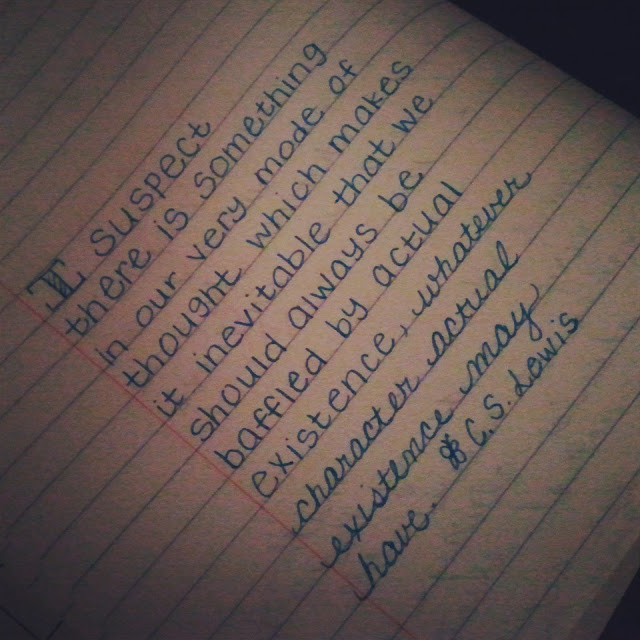 I suspect
there is something
in our very mode of
thought which makes
it inevitable that we
should always be
baffled by actual
existence, whatever
character actual
existence may
have.
C. S. Lewis